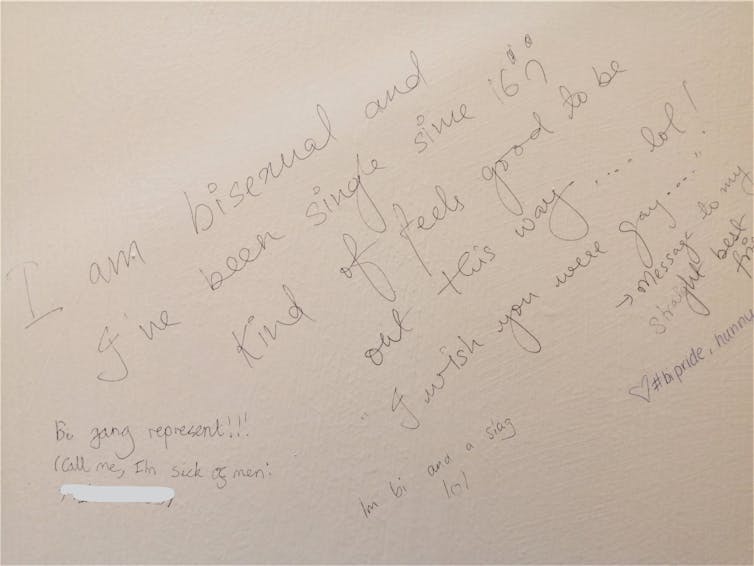 I am bisexual and
I've been single since 16""
Kind of feels good to be
out this way.... lol!
"I wish you were gay...."
→ Message to my
straight best
♡ #bipride, hunny
Bi gang represent!!!
(Call me, I'm sick of men:
Im bi and a slag
lol